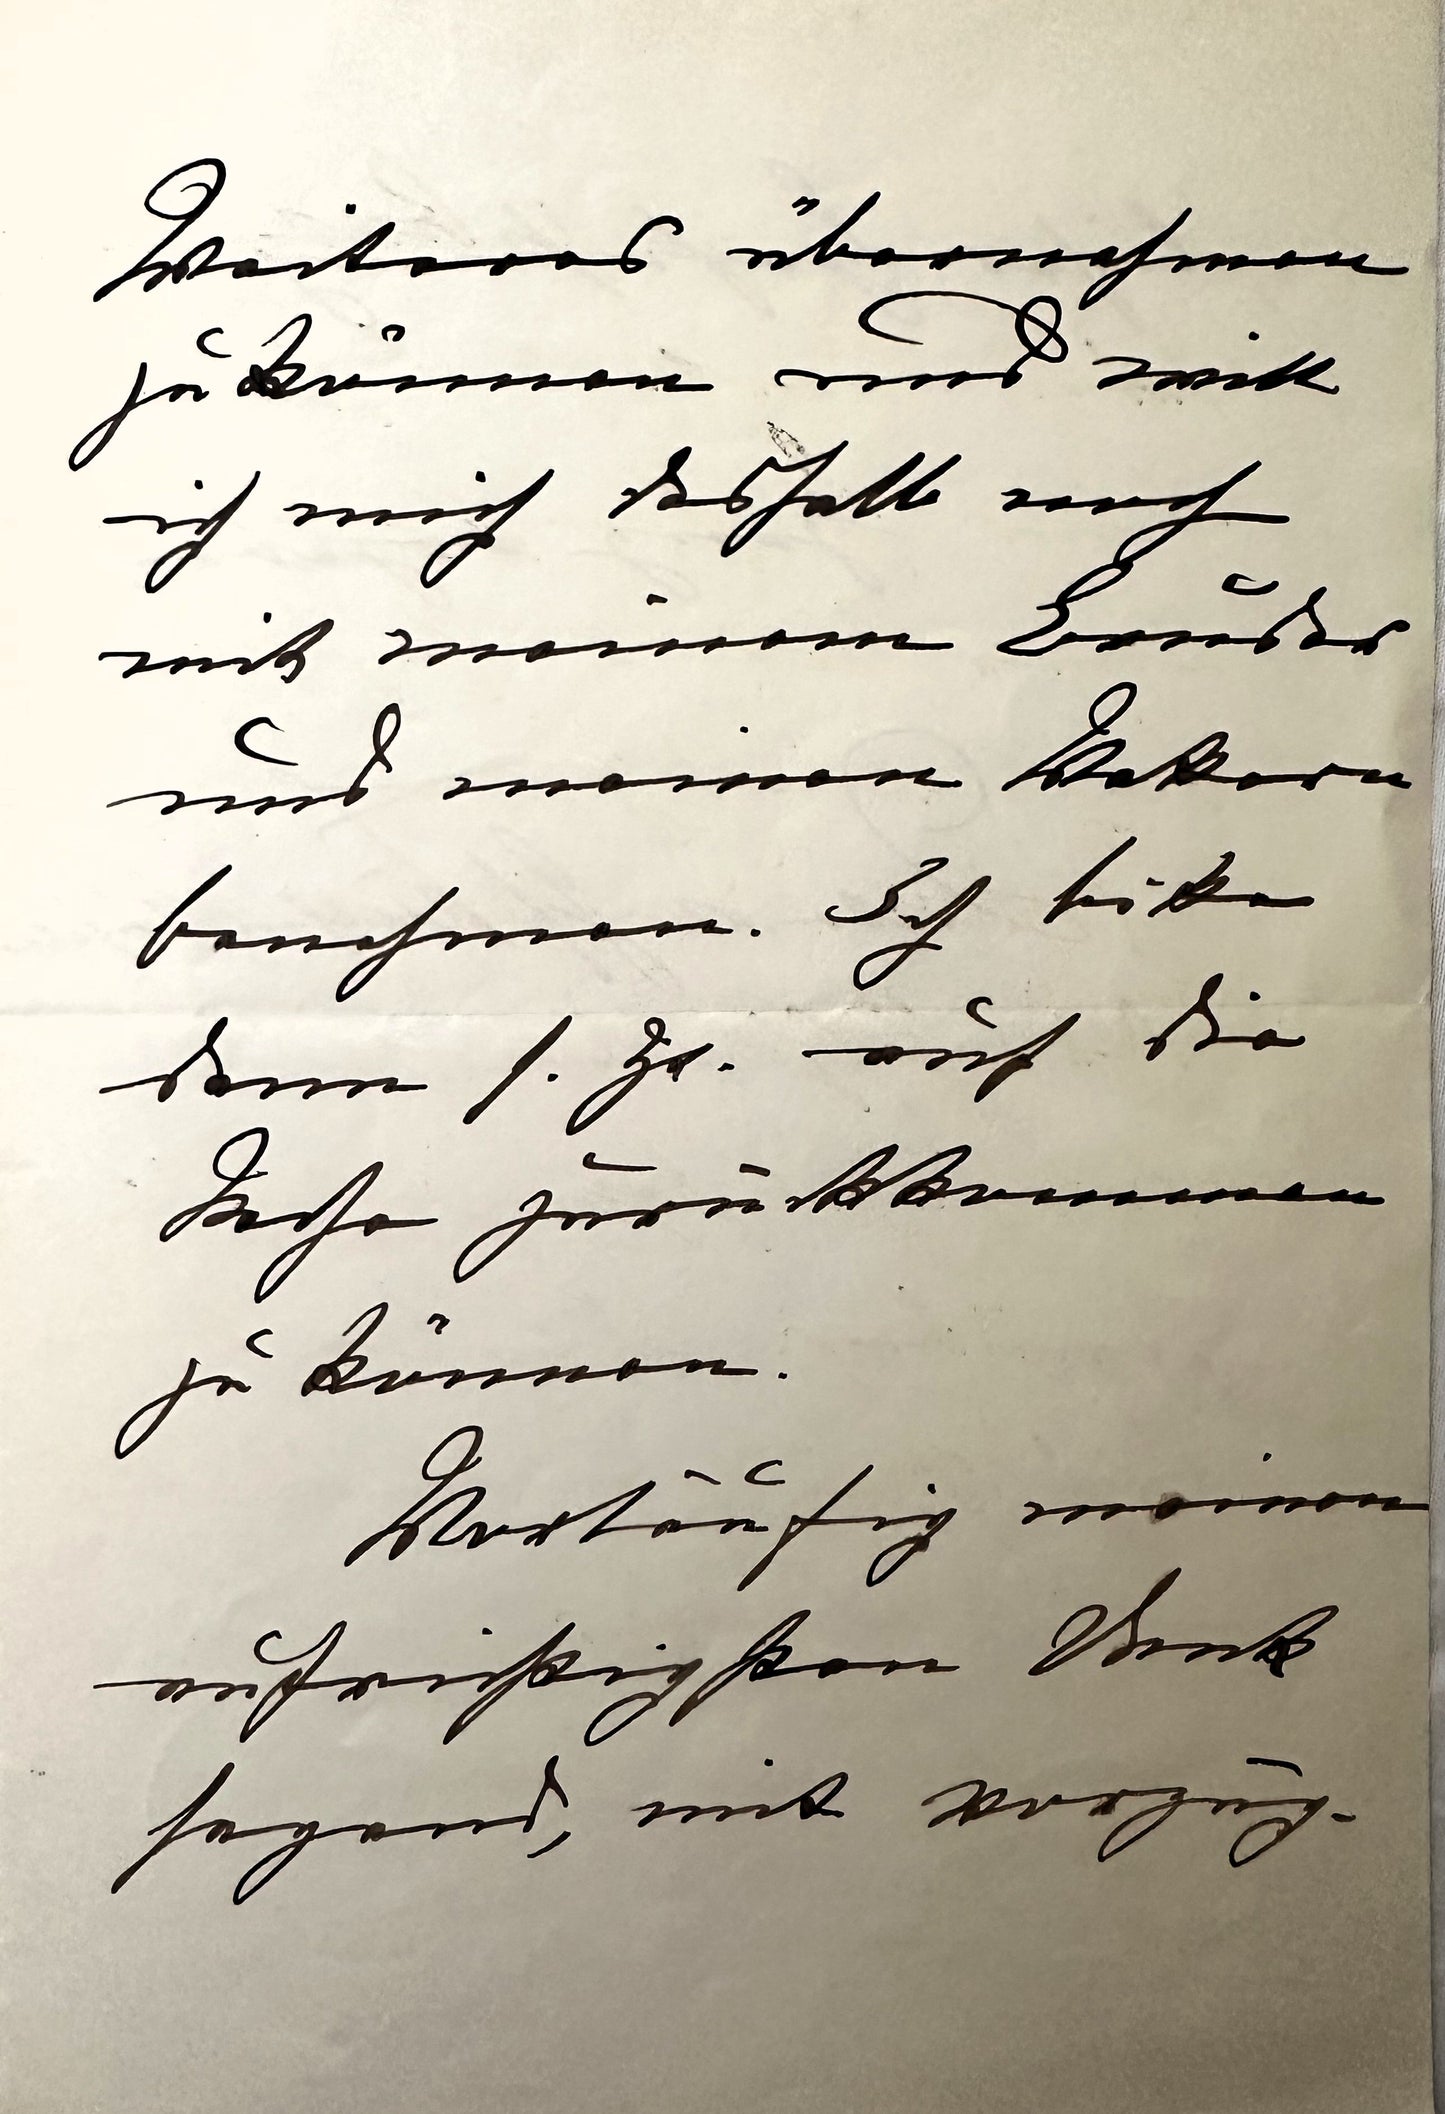 Weiteres übernehmen
zu können und will
ich mich deshalb noch
mit meinem Bruder
und meinen Vetern
benehmen. Ich bitte
dann s. Zt. auf die
Sache zurückkommen
zu können.
Vorläufig meinen
aufrichtigsten Dank
sagend, mit vorzüg-